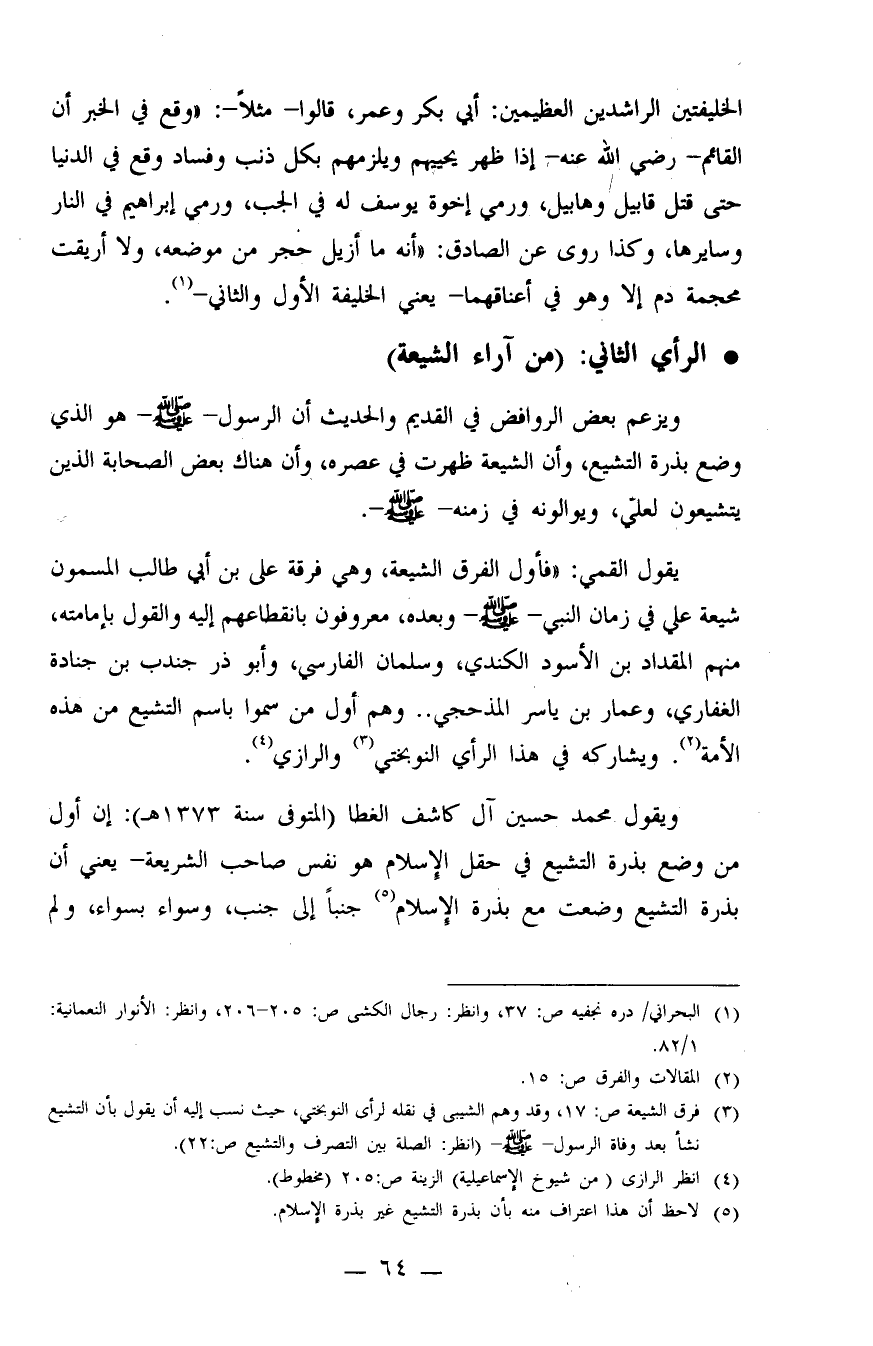 الخليفتين الراشدين العظيمين: أبي بكر وعمر، قالوا– مثلاً–: «وقع في الخبر أن
القائم– رضي الله عنه– إذا ظهر يحييهم ويلزمهم بكل ذنب وفساد وقع في الدنيا
حتى قتل قابيل وهابيل، ورمي إخوة يوسف له في الجب، ورمي إبراهيم في النار
وسايرها، وكذا روى عن الصادق: «أنه ما أزيل حجر من موضعه، ولا أريقت
محجمة دم إلا وهو في أعناقهما– يعني الخليفة الأول والثاني–(١).
● الرأي الثاني: (من آراء الشيعة)
ويزعم بعض الروافض في القديم والحديث أن الرسول– ﷺ – هو الذي
وضع بذرة التشيع، وأن الشيعة ظهرت في عصره، وأن هناك بعض الصحابة الذين
يتشيعون لعلّي، ويوالونه في زمنه– ﷺ –.
يقول القمي: «فأول الفرق الشيعة، وهي فرقة على بن أبي طالب المسمون
شيعة علي في زمان النبي– ﷺ – وبعده، معروفون بانقطاعهم إليه والقول بإمامته،
منهم المقداد بن الأسود الكندي، وسلمان الفارسي، وأبو ذر جندب بن جنادة
الغفاري، وعمار بن ياسر المذحجي.. وهم أول من سموا باسم التشيع من هذه
الأمة(٢). ويشاركه في هذا الرأي النوبختي(٣) والرازي(٤).
ويقول محمد حسين آل كاشف الغطا (المتوفى سنة ١٣٧٣هـ): إن أول
من وضع بذرة التشيع في حقل الإسلام هو نفس صاحب الشريعة– يعني أن
بذرة التشيع وضعت مع بذرة الإسلام(٥) جنباً إلى جنب، وسواء بسواء، ولم
(١) البحراني/ دره نجفيه ص: ٣٧، وانظر: رجال الكشى ص: ٢٠٥–٢٠٦، وانظر: الأنوار النعمانية:
٨٢/١.
(٢) المقالات والفرق ص: ١٥.
(٣) فرق الشيعة ص: ١٧، وقد وهم الشيبى في نقله لرأى النوبختي، حيث نسب إليه أن يقول بأن التشيع
نشأ بعد وفاة الرسول– ﷺ – (انظر: الصلة بين التصرف والتشيع ص:٢٢).
(٤) انظر الرازى ( من شيوخ الإسماعيلية) الزينة ص:٢٠٥ (مخطوط).
(٥) لاحظ أن هذا اعتراف منه بأن بذرة التشيع غير بذرة الإسلام.
— ٦٤ —